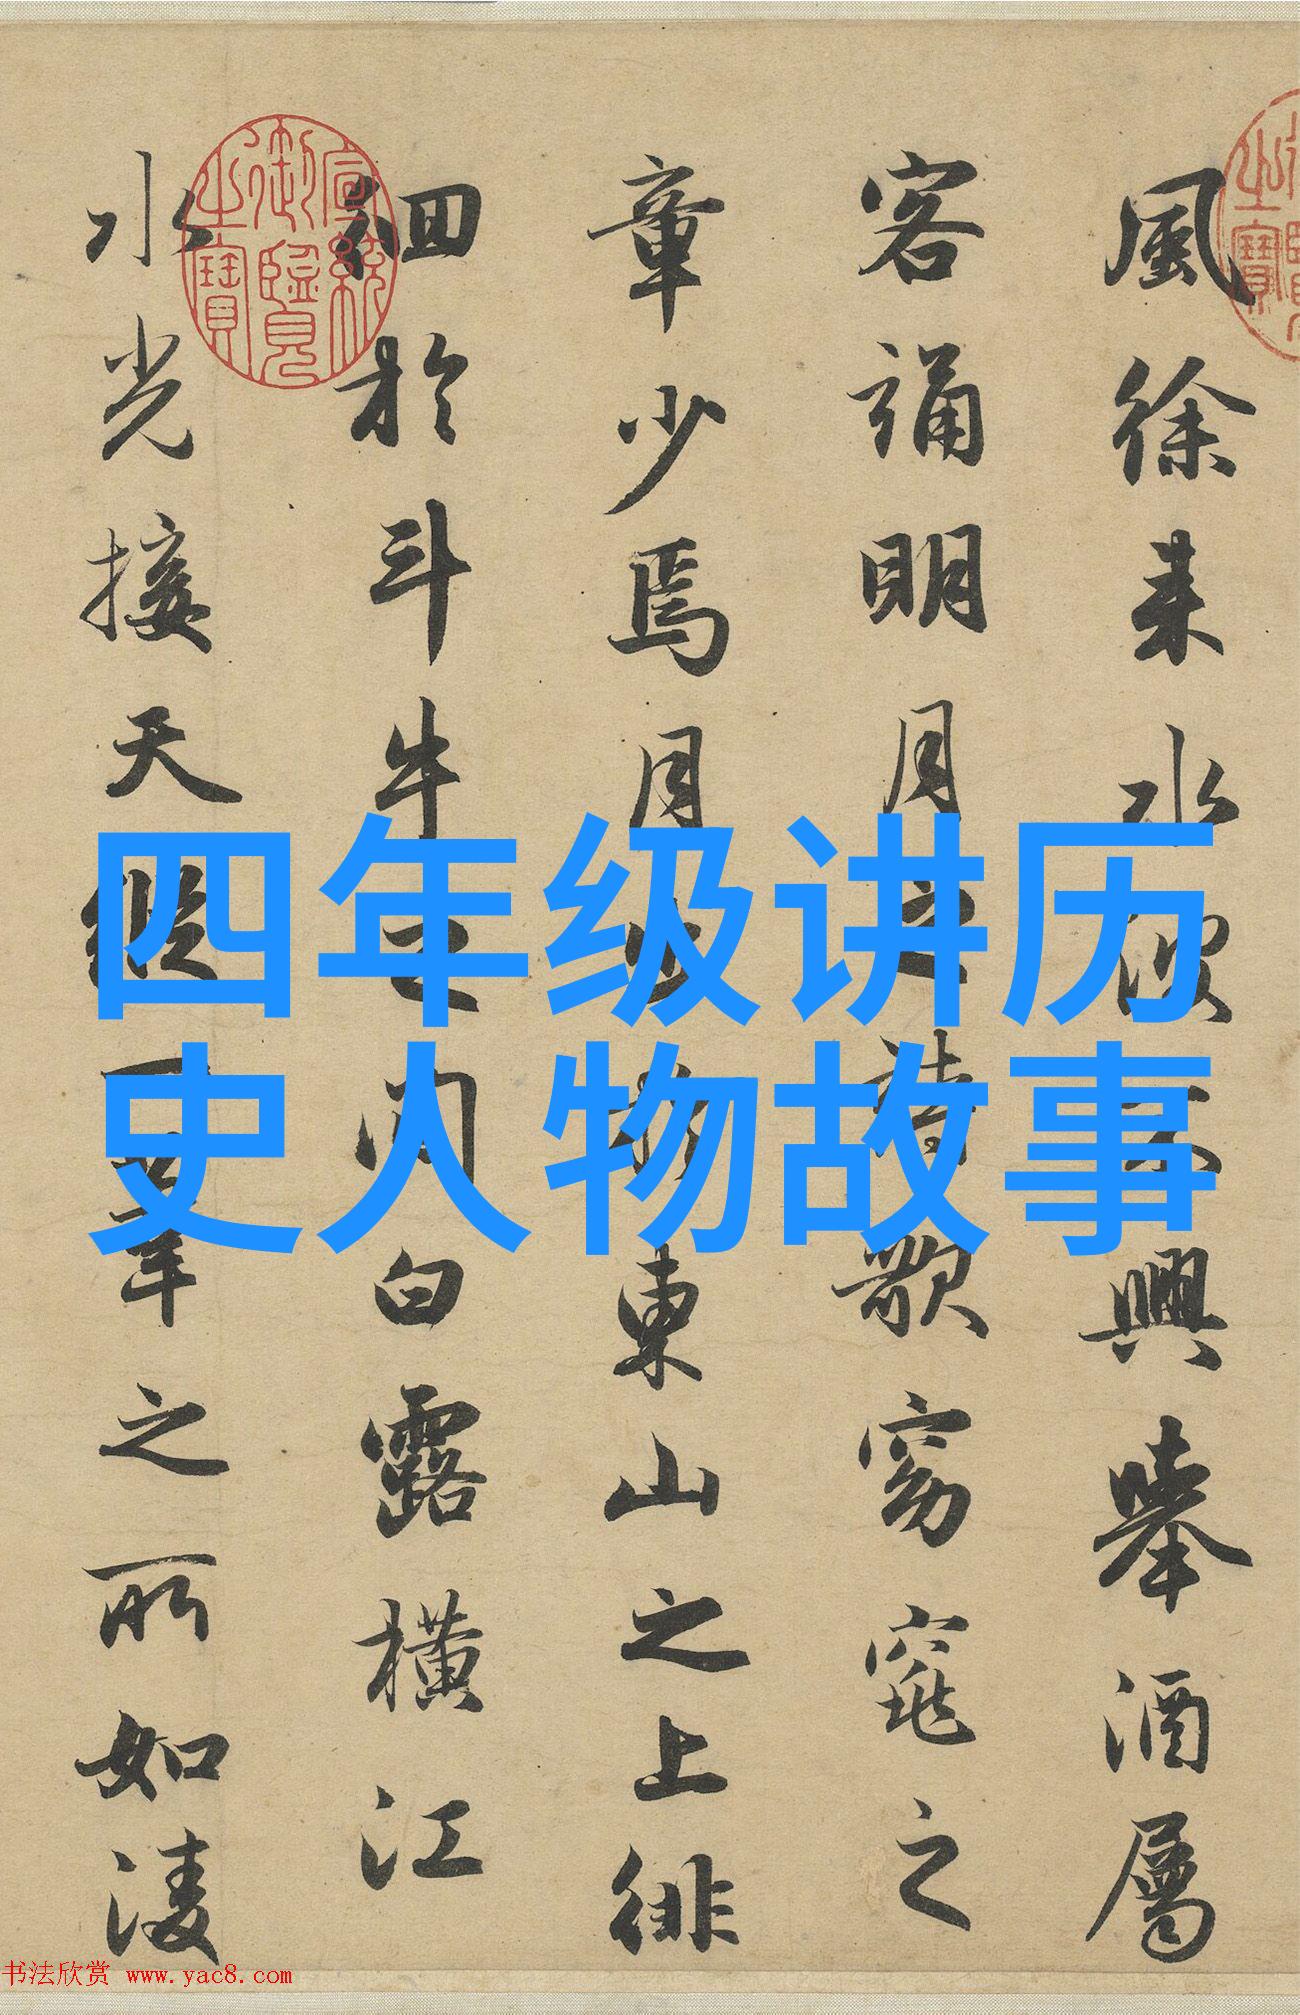 四年级讲历
史人物故事
風徐来水波不興舉酒屬
客誦明月之詩歌窈窕之
章少焉月出於東山之上徘
徊於斗牛之間白露橫江
水光接天縱一葦之所如淩
宣統
御覽
之寶
书法欣赏 www.yac8.com